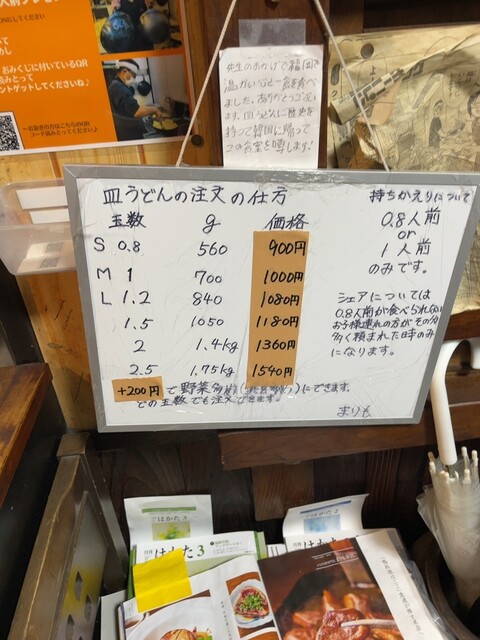 おみくじに付いているQR
読みとって
ントゲットしてくださいね♪
先生のおかげで福岡で
温かい心と一食を食べ
ました。ありがとうござい
ます。皿うどんに歴史を
持って韓国に帰って
この名を噂します!
皿うどんの注文の仕方
玉数 g 価格
S 0.8 560 900円
M 1 700 1000円
L 1.2 840 1080円
1.5 1050 1180円
2 1.4kg 1360円
2.5 1.75kg 1540円
+200円 で野菜多め にできます。
どの玉数でも注文できます。
持ちかえりについて
0.8人前
or
1人前
のみです。
シェアについては
0.8人前が食べられない
お子様連れの方がその分
多く頼まれた時のみ
になります。
まりも
はかた 3
はかた